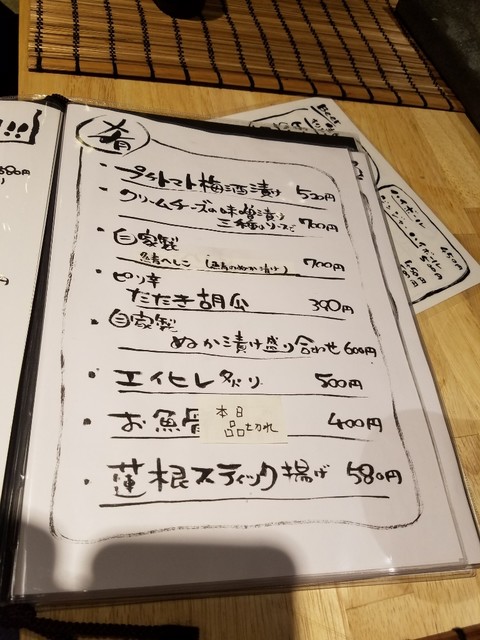 肴
・プチトマト梅酒漬け 520円
・クリームチーズの味噌漬け
三種のソースで 700円
・自家製
鯖へしこ (鯖のぬか漬け) 700円
・ピリ辛
たたき胡瓜 390円
・自家製
ぬか漬け盛り合わせ 600円
・エイヒレ炙り 500円
・お魚骨 400円
本日
品切れ
・蓮根スティック揚げ 580円
!!!
Beer
ハイボール 450円